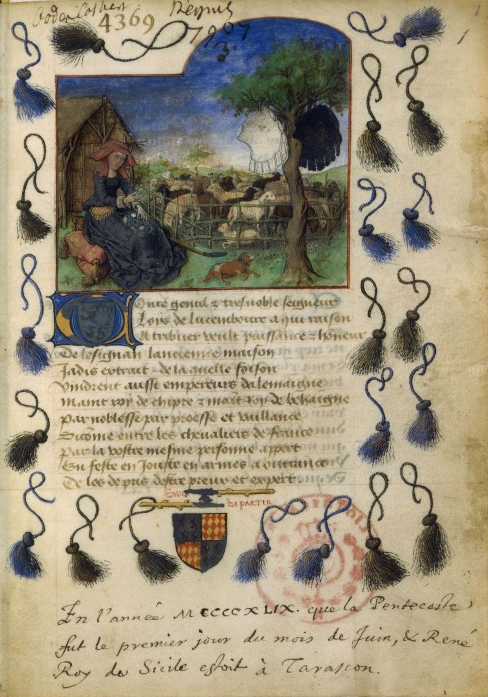 4369
Regius
7907
3.
1
Toute gentil & tresnoble seigneur
Loys de lucembourc a qui raison
Atribuer veult puissance & honeur
De lesignan lancienne maison
Jadis extrait de laquelle foison
Vindrent aussi empereurs dalemaigne
Maint roy de chipre & maīt roy de behaigne
par noblesse par proesse et vaillance
Sicōme entre les chevaliers de france
par la vostre mesme personne appert
En feste en jouste en armes a oultrance
De los de pris destre preux et expert
DEPARTIR
En l'année MCCCCXLIX. que la Pentecoste
fut le premier jour du mois de Juin, & René
Roy de Sicile estoit à Tarascon.